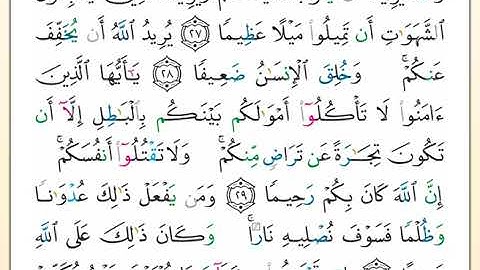 ٱلشَّهَوَٰتِ أَن تَمِيلُوا۟ مَيْلًا عَظِيمًا ﴿٢٧﴾ يُرِيدُ ٱللَّهُ أَن يُخَفِّفَ
عَنكُمْ ۚ وَخُلِقَ ٱلْإِنسَٰنُ ضَعِيفًا ﴿٢٨﴾ يَٰٓأَيُّهَا ٱلَّذِينَ
ءَامَنُوا۟ لَا تَأْكُلُوٓا۟ أَمْوَٰلَكُم بَيْنَكُم بِٱلْبَٰطِلِ إِلَّآ أَن
تَكُونَ تِجَٰرَةً عَن تَرَاضٍ مِّنكُمْ ۚ وَلَا تَقْتُلُوٓا۟ أَنفُسَكُمْ ۚ
إِنَّ ٱللَّهَ كَانَ بِكُمْ رَحِيمًا ﴿٢٩﴾ وَمَن يَفْعَلْ ذَٰلِكَ عُدْوَٰنًا
وَظُلْمًا فَسَوْفَ نُصْلِيهِ نَارًا ۚ وَكَانَ ذَٰلِكَ عَلَى ٱللَّهِ